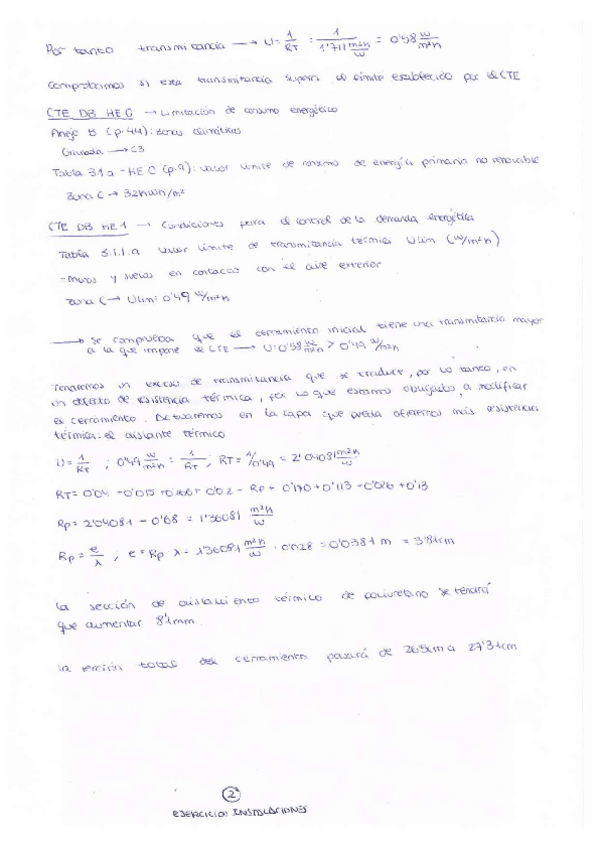 Por tanto transmitancia → U = 1/RT = 1/1'711 m²k/w = 0'58 w/m²k
Comprobamos si esta transmitancia supera el límite establecido por el CTE
CTE DB HE 0 → Limitación de consumo energético
Anejo B (p.44): zonas climáticas
Granada → C3
Tabla 3.1.a - HE 0 (p.9): valor límite de consumo de energía primaria no renovable
Zona C → 32 kwh/m²
CTE DB HE1 → Condiciones para el control de la demanda energética
Tabla 3.1.1.a valor límite de transmitancia térmica Ulim (w/m²k)
- muros y suelos en contacto con el aire exterior
Zona C → Ulim: 0'49 w/m²k
→ Se comprueba que el cerramiento inicial tiene una transmitancia mayor
a la que impone el CTE → U: 0'58 w/m²k > 0'49 w/m²k
Tenemos un exceso de transmitancia que se traduce, por lo tanto, en
un defecto de resistencia térmica, por lo que estamos obligados a modificar
el cerramiento. Actuaremos en la capa que pueda ofrecernos más resistencia
térmica: el aislante térmico
U = 1/RT ; 0'49 w/m²k = 1/RT ; RT = 1/0'49 = 2'04081 m²k/w
RT = 0'04 + 0'015 + 0'02 + Rp + 0'170 + 0'113 + 0'13
Rp = 2'04081 - 0'68 = 1'36081 m²k/w
Rp = e/λ ; e = Rp · λ = 1'36081 m²k/w · 0'028 = 0'0381 m = 3'81cm
La sección de aislamiento térmico de poliuretano se tendrá
que aumentar 8'1mm.
La sección total del cerramiento pasará de 26'5cm a 27'31cm
2
EJERCICIO: INSTALACIONES